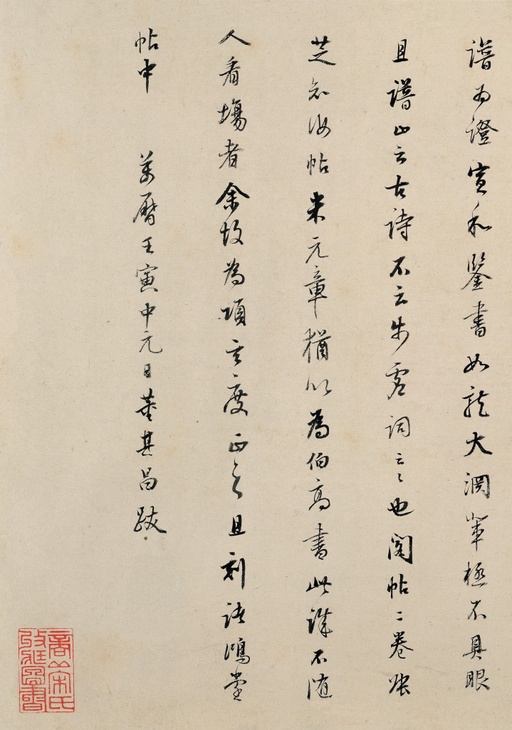 譜為證宣和鑒書如龍大淵輩極不具眼
且譜止云古詩不云步虛詞云云也閣帖二卷張
芝知汝帖米元章猶以為伯高書此誰不隨
人看場者余故為項玄度正之且刻諸鴻堂
帖中
萬曆壬寅中元日董其昌跋